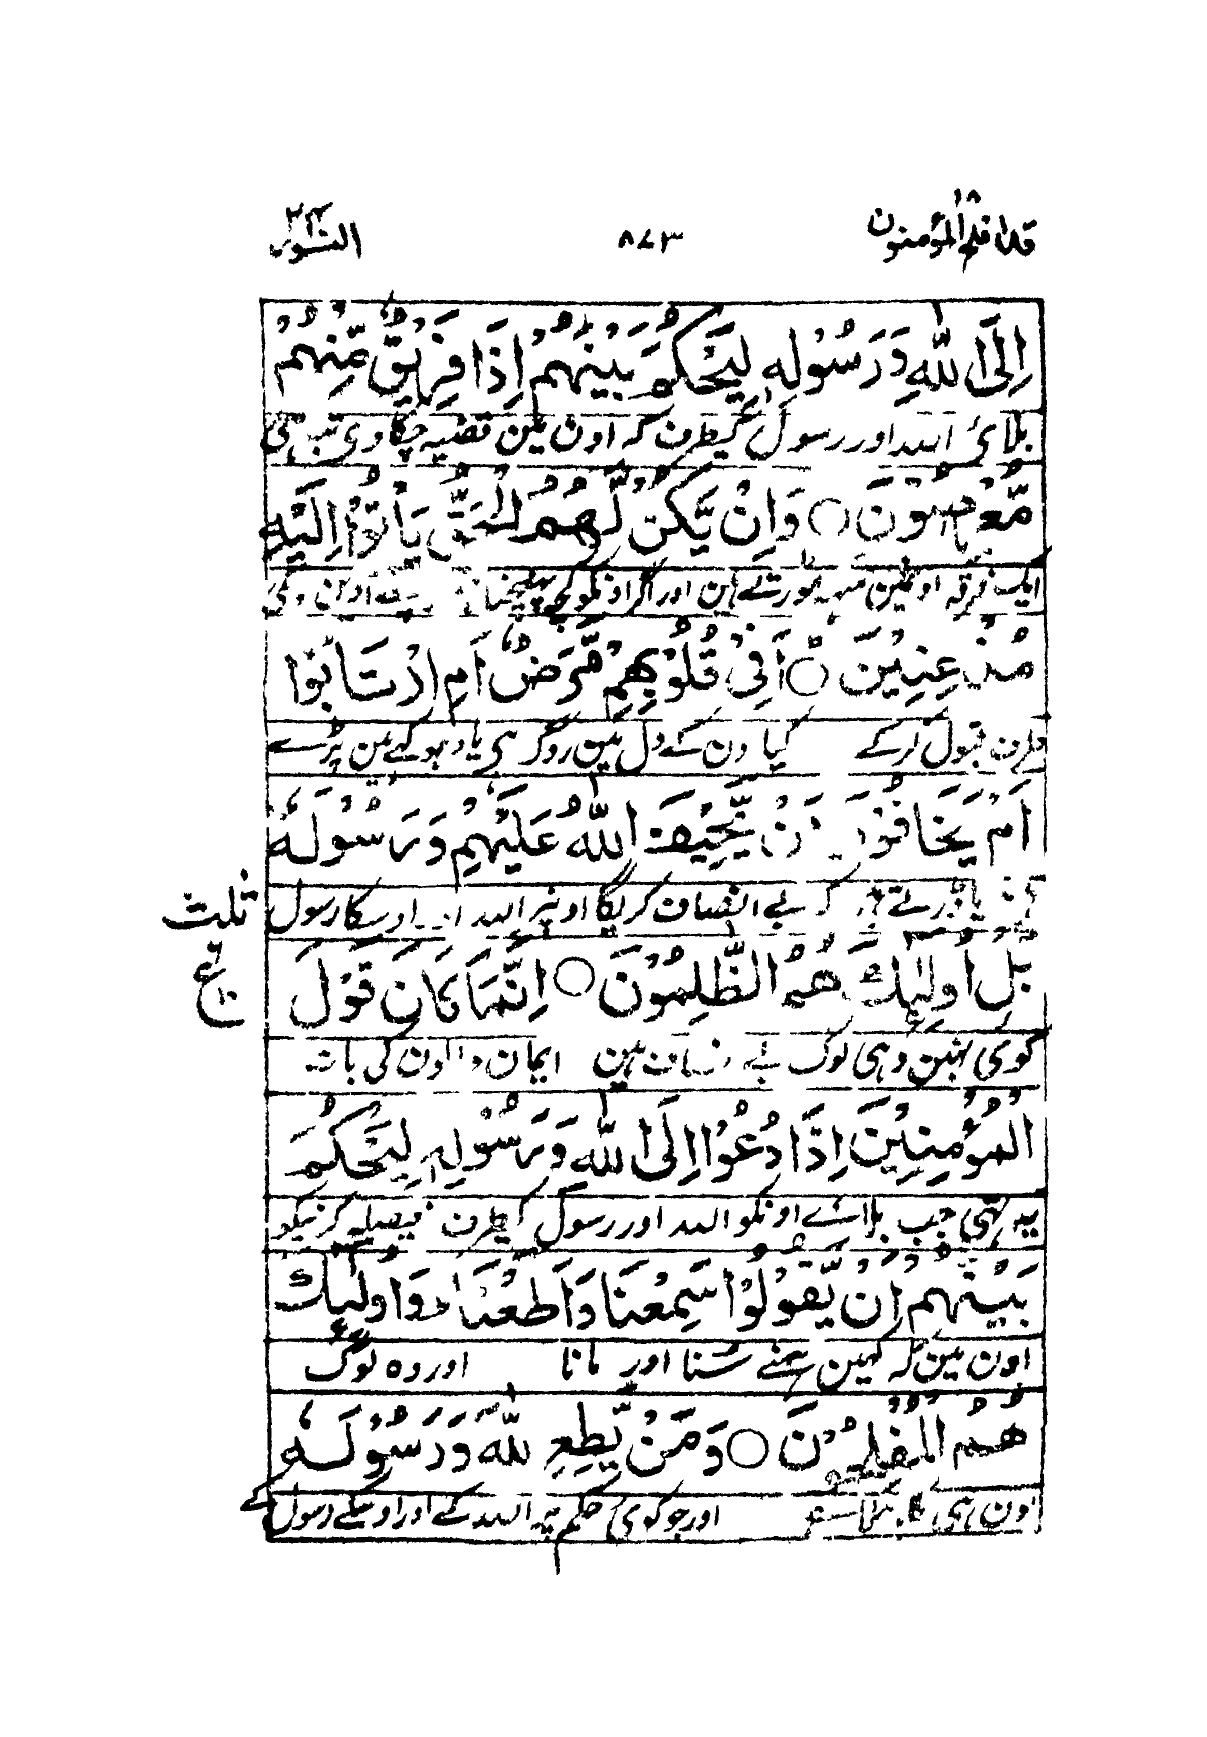 قد افلح المؤمنون ١٨ ٨٧٣ النور ٢٤
اِلَى اللّٰهِ وَرَسُوْلِهٖ لِيَحْكُمَ بَيْنَهُمْ اِذَا فَرِيْقٌ مِّنْهُمْ
بلائے اللہ اور رسول کیطرف کہ اون مین قضیہ چکاوی تب ہی
مُّعْرِضُوْنَ ○ وَاِنْ يَّكُنْ لَّهُمُ الْحَقُّ يَأْتُوْٓا اِلَيْهِ
ایک فرقہ اونمین منہ مورتے ہین اور اگر اونکو کچھ پہنچتا
مُذْعِنِيْنَ ○ اَفِيْ قُلُوْبِهِمْ مَّرَضٌ اَمِ ارْتَابُوْٓا
طرف قبول کرکے کیا اون کے دل مین روگ ہی یا دہوکے مین پڑے
اَمْ يَخَافُوْنَ اَنْ يَّحِيْفَ اللّٰهُ عَلَيْهِمْ وَرَسُوْلُهٗ
ہین یا ڈرتے ہین کہ بے انصاف کریگا اونپر اللہ اور اوسکا رسول
ثلث
بَلْ اُولٰٓئِكَ هُمُ الظّٰلِمُوْنَ ○ اِنَّمَا كَانَ قَوْلَ
ع
کوئی نہین وہی لوگ بے انصاف ہین ایمان والون کی بات
الْمُؤْمِنِيْنَ اِذَا دُعُوْٓا اِلَى اللّٰهِ وَرَسُوْلِهٖ لِيَحْكُمَ
یہ تہی جب بلائے اونکو اللہ اور رسول کیطرف فیصلہ کرنیکو
بَيْنَهُمْ اَنْ يَّقُوْلُوْا سَمِعْنَا وَاَطَعْنَا ؕ وَاُولٰٓئِكَ
اون مین کہ کہین ہمنے سنا اور مانا اور وہ لوگ
هُمُ الْمُفْلِحُوْنَ ○ وَمَنْ يُّطِعِ اللّٰهَ وَرَسُوْلَهٗ
اون ہی کا بھلا ہے اور جو کوئی حکم پر اللہ کے اور اوسکے رسول کے